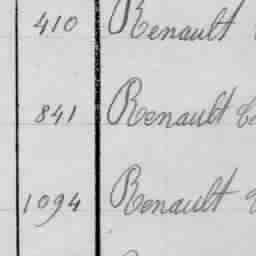 410 Renault
841 Renault
1094 Renault